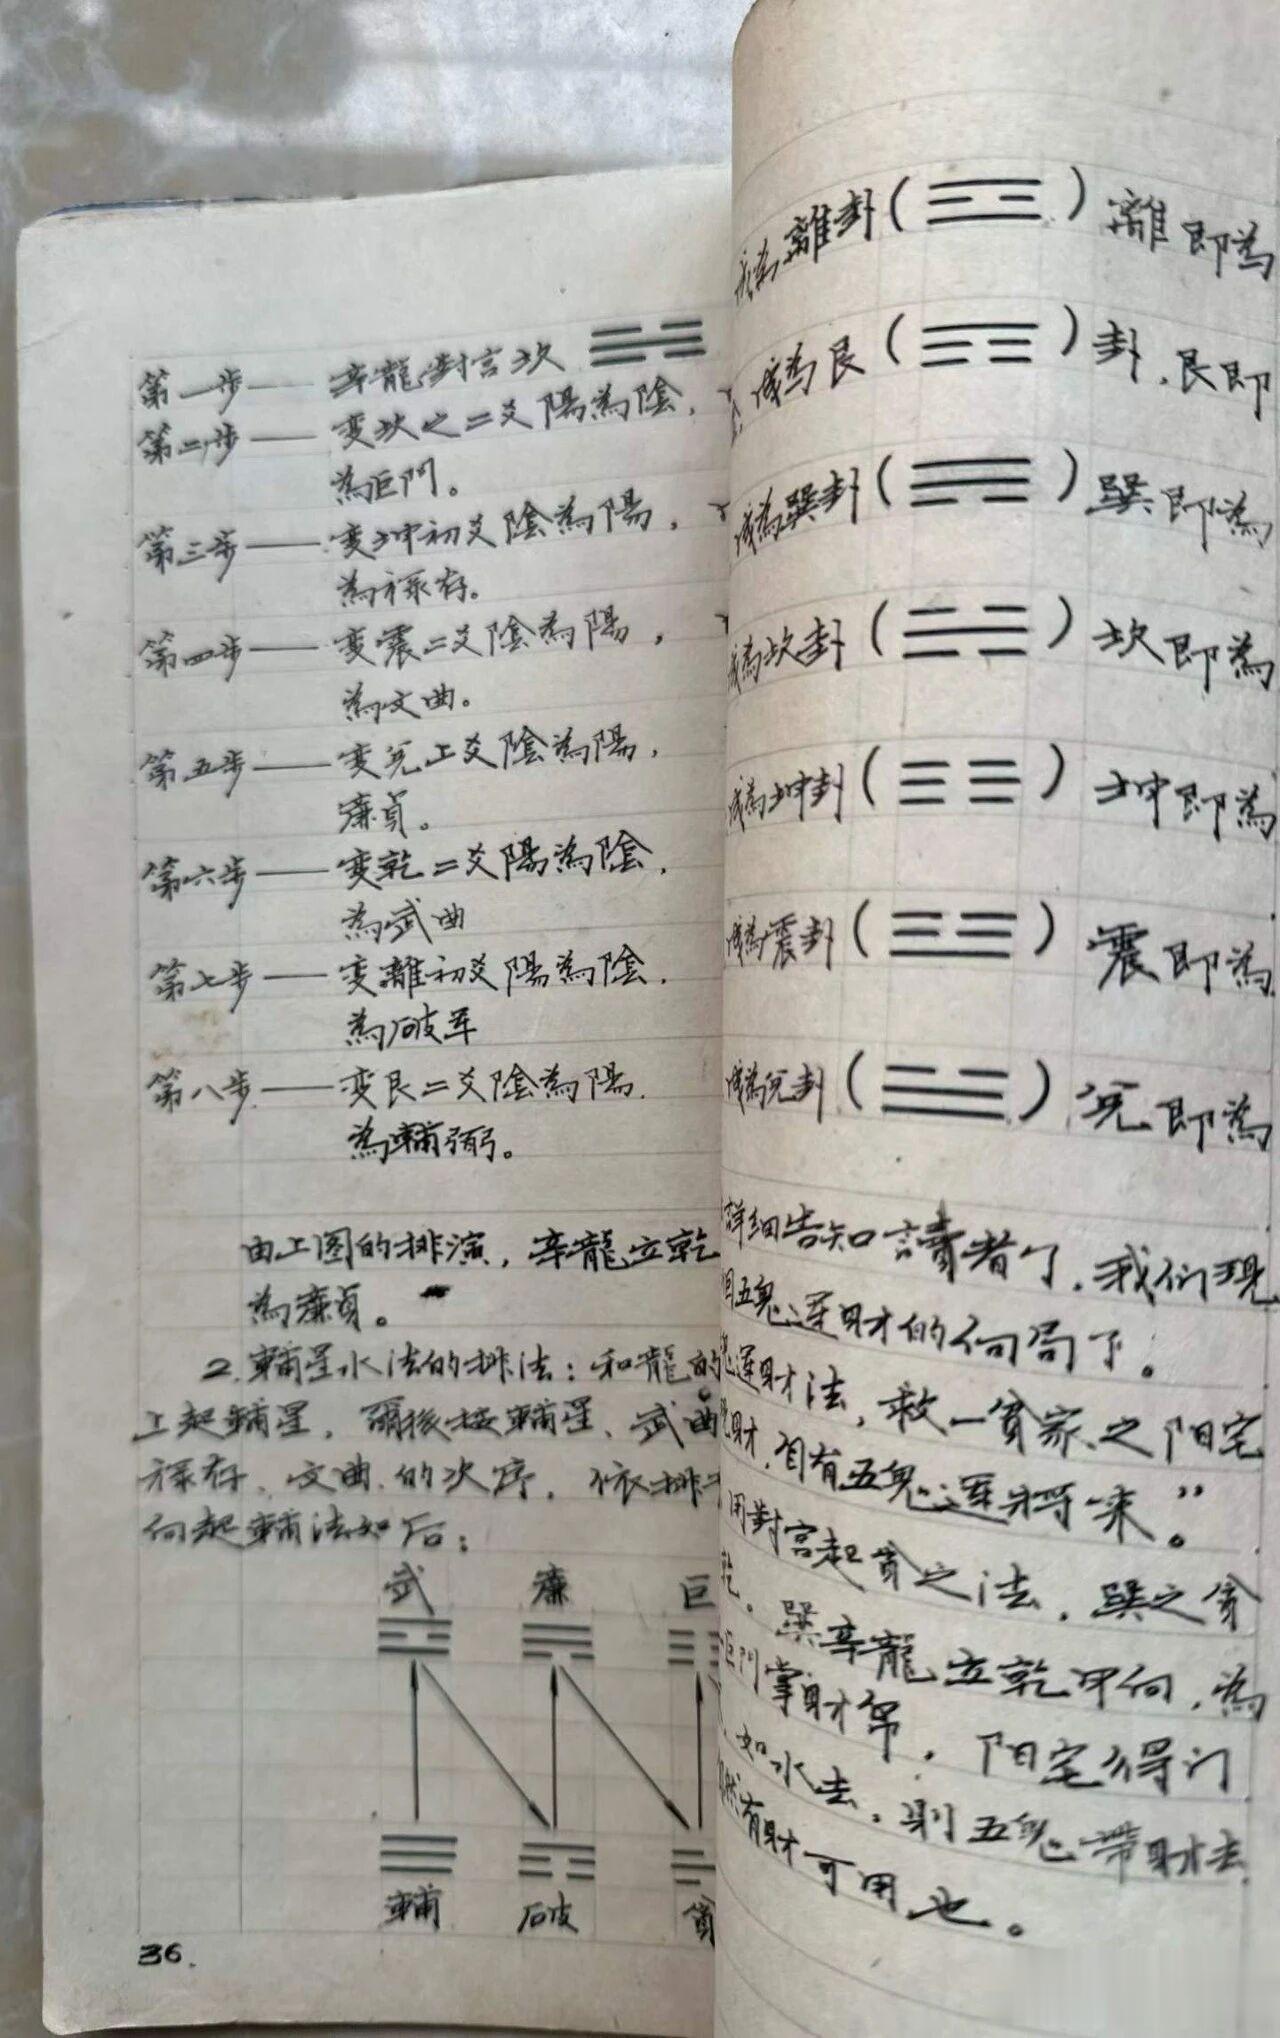 第一步——辛龍對宫坎
第二步——变坎之二爻陽為陰，
為巨門。
第三步——变坤初爻陰為陽，
為禄存。
第四步——变震二爻陰為陽，
為文曲。
第五步——变兑上爻陰為陽，
廉貞。
第六步——变乾二爻陽為陰，
為武曲
第七步——变離初爻陽為陰，
為破军
第八步——变艮二爻陰為陽，
為輔弼。
由上图的排演，辛龍立乾
為廉貞。
2.輔星水法的排法：和龍的
上起輔星，爾後按輔星、武曲
禄存、文曲、的次序，依排
向起輔法如后：
武 廉 巨
輔 破 貪
36.
成為離卦（☲）離即為
成為艮（☶）卦，艮即
成為巽卦（☴）巽即為
成為坎卦（☵）坎即為
成為坤卦（☷）坤即為
成為震卦（☳）震即為
成為兑卦（☱）兑即為
詳細告知讀者了，我们現
五鬼運財的佈局下。
運財法，救一貧家之阳宅
財，自有五鬼運将来。”
用對宫起貪之法，巽之貪
乾。巽辛龍立乾甲向，為
巨門掌財帛，阳宅得门
，如水去，則五鬼帶財去
然有財可用也。